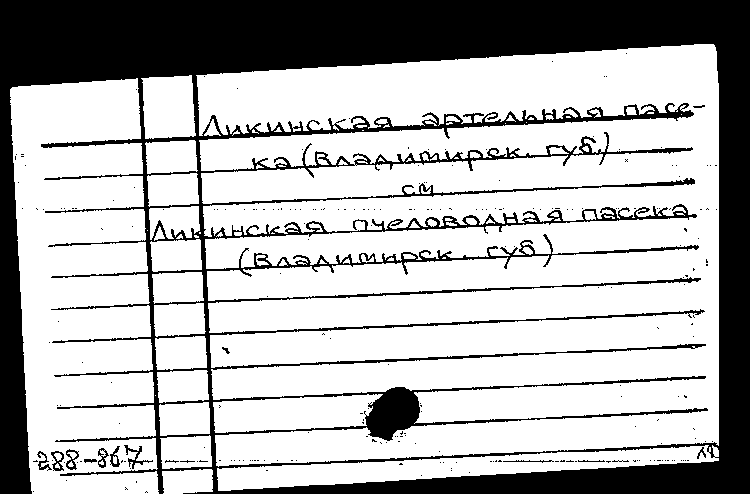 Ликинская артельная пасе-
ка (Владимирск. губ.)
см
Ликинская пчеловодная пасека.
(Владимирск. губ)
288-867